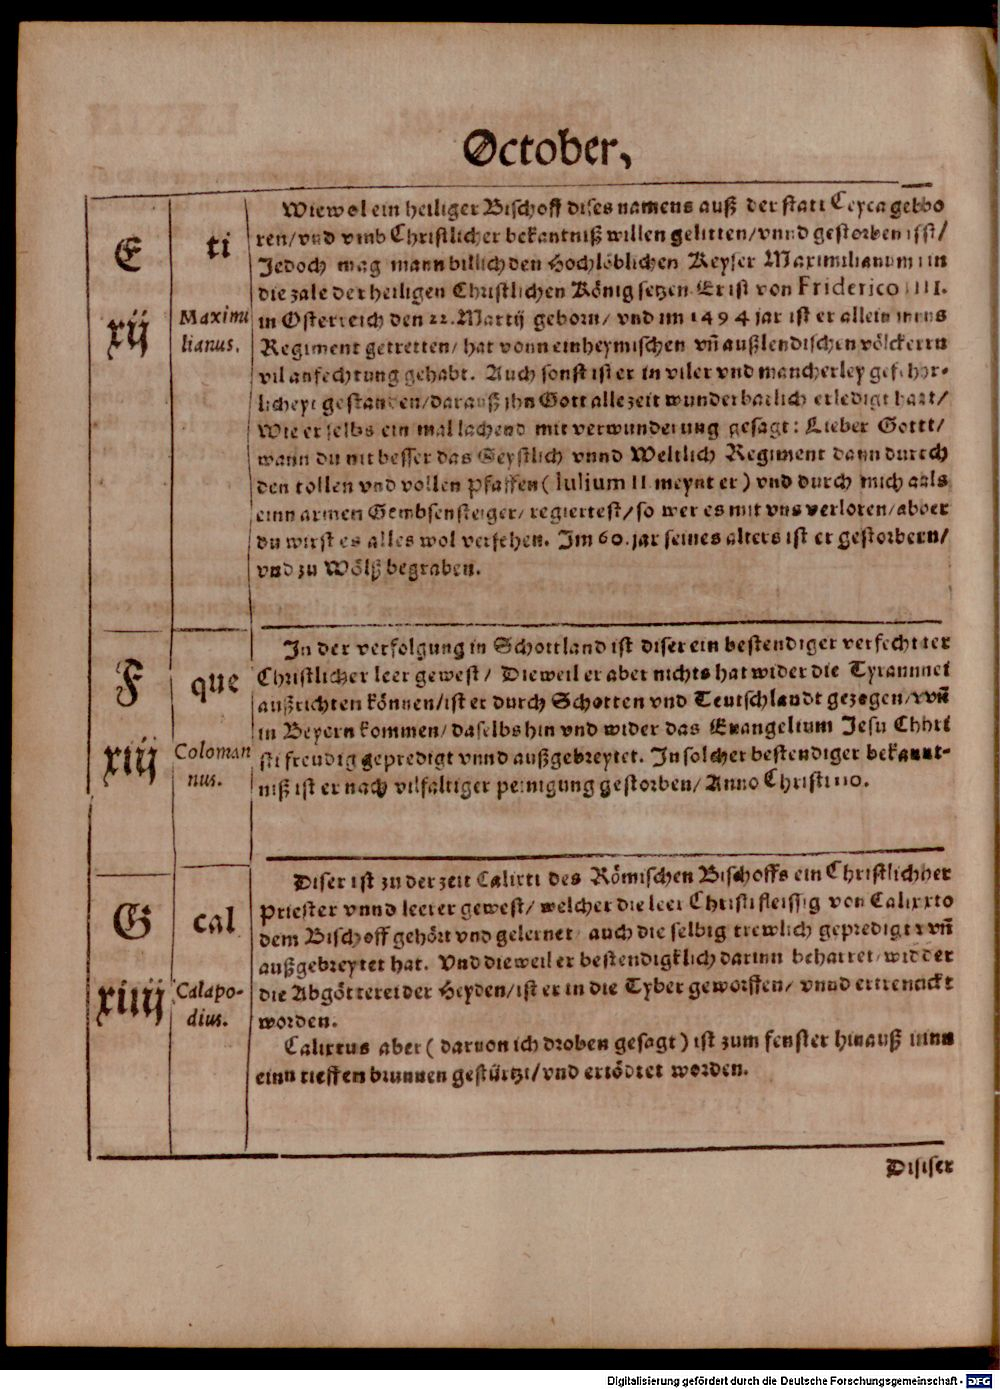 October,
E
xij
ti
Maximi
lianus.
Wiewol ein heiliger Bischoff dises namens auß der statt Ceyca gebbo
ren/ vnd vmb Christlicher bekantniß willen gelitten/ vnnd gestorben isst/
Jedoch mag mann billich den Hochlöblichen Keyser Maximilianum inn
die zale der heiligen Christlichen König setzen. Er ist von Friderico IIII.
in Osterreich den 22. Martij geborn/ vnd im 1494 jar ist er allein inns
Regiment getretten/ hat vonn einheymischen vñ außlendischen völckernn
vil anfechtung gehabt. Auch sonst ist er in viler vnd mancherley gefehor-
licheyt gestanden/ darauß jhn Gott alle zeit wunderbarlich erledigt hatt/
Wie er selbs ein mal lachend mit verwunderung gesagt: Lieber Gottt/
wann du nit besser das Geystlich vnnd Weltlich Regiment dann durcch
den tollen vnd vollen Pfaffen ( Iulium II. meynt er ) vnd durch mich aals
einn armen Gembsensteiger/ regiertest/ so wer es mit vns verloren/ abber
du wirst es alles wol versehen. Im 60. jar seines alters ist er gestorbenn/
vnd zu Wölß begraben.
F
xiij
que
Coloman
nus.
In der verfolgung in Schottland ist diser ein bestendiger verfechtter
Christlicher leer gewest/ Dieweil er aber nichts hat wider die Tyrannnei
außrichten können/ ist er durch Schotten vnd Teutschlandt gezogen/ vvñ
in Beyern kommen/ daselbs hin vnd wider das Euangelium Jesu Chhri
sti freudig gepredigt vnnd außgebreytet. In solcher bestendiger bekannt-
niß ist er nach vilfaltiger peinigung gestorben/ Anno Christi 110.
G
xiiij
cal
Calapo-
dius.
Diser ist zu der zeit Calixti des Römischen Bischoffs ein Christlichher
Priester vnnd leerer gewest/ welcher die leer Christi fleissig von Calixxto
dem Bischoff gehört vnd gelernet/ auch die selbig trewlich gepredigt vvñ
außgebreytet hat. Vnd dieweil er bestendigklich darinn beharret/ widder
die Abgötterei der Heyden/ ist er in die Tyber geworffen/ vnnd ertrenckt
worden.
Calixtus aber ( daruon ich droben gesagt ) ist zum fenster hinauß inns
einn tieffen brunnen gestürtzt/ vnd ertödtet worden.
Disiser
Digitalisierung gefördert durch die Deutsche Forschungsgemeinschaft - DFG